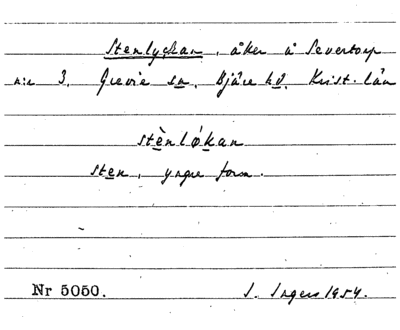 Stenlyckan, åker å Severtorp
n:r 3, Grevie sn. Bjäre hd. Krist. län
stènlókan
sten, yngre form.
Nr 5050.
I. Ingers 1954.